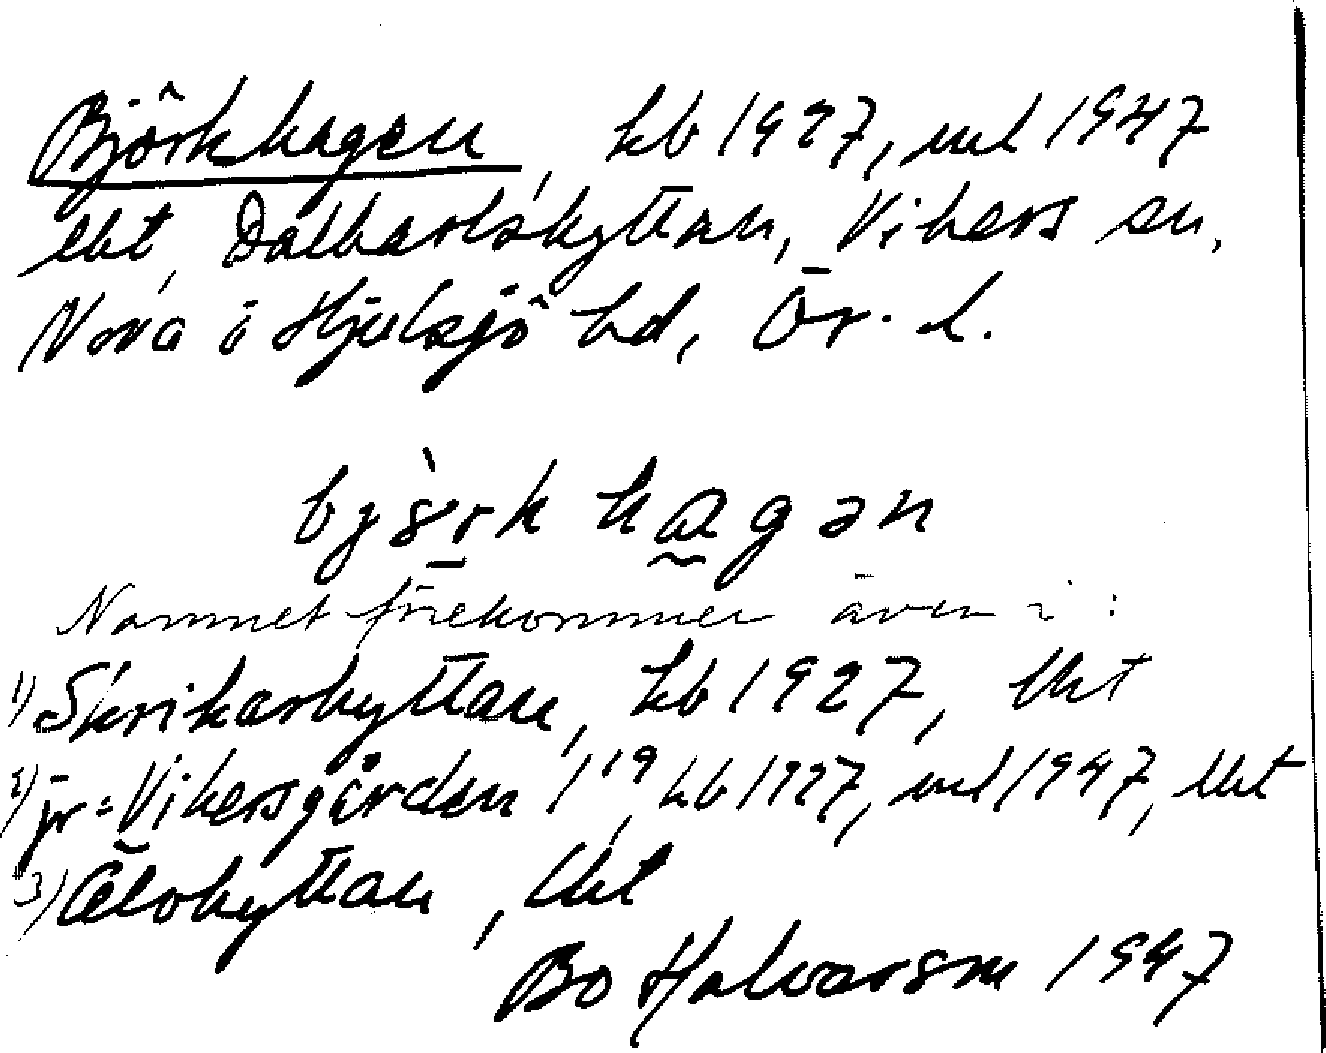 Björkhagen, kb 1927, ml 1947
lht, Dalkarlshyttan, Vikers sn,
Nora o Hjulsjö bd, Ör. l.
bjòrk hagən
Namnet förekommer även i:
1) Skrikarhyttan, kb 1927, lht
2) jr = Vikersgården 1¹⁹, kb 1927, ml 1947, lht
3) Älvhyttan, lht
Bo Halvarson 1947